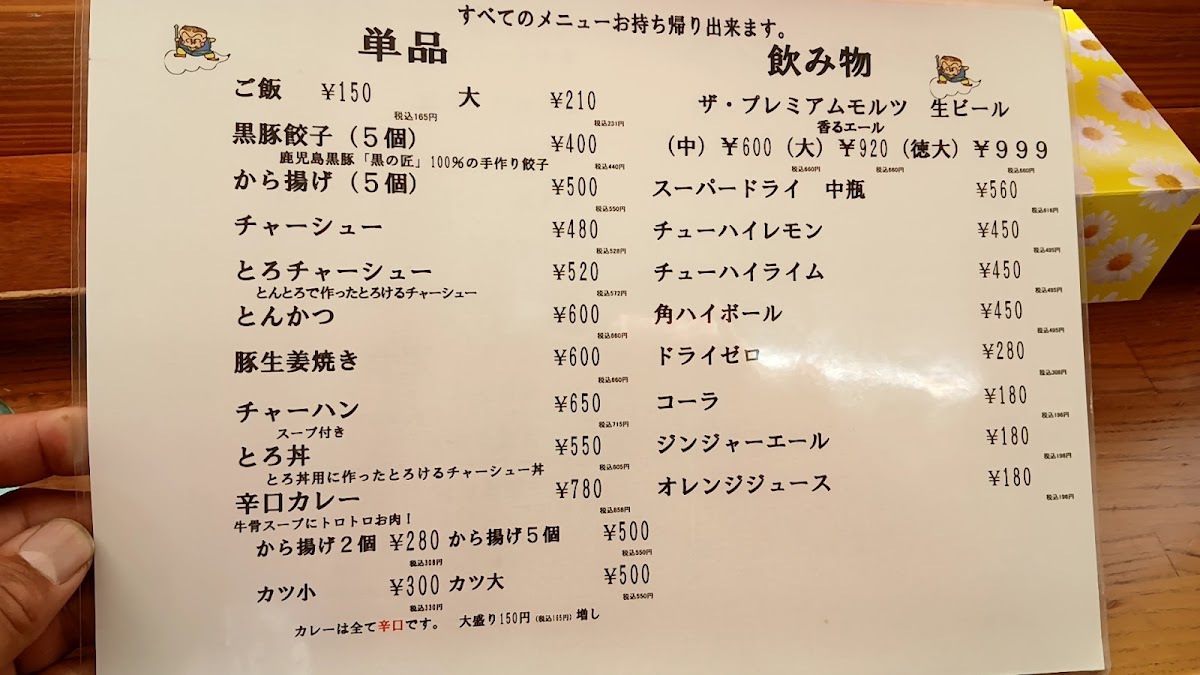 すべてのメニューお持ち帰り出来ます。
単品
ご飯 ¥150 大 ¥210
税込165円 税込231円
黒豚餃子（５個） ¥400
鹿児島黒豚「黒の匠」100%の手作り餃子 税込440円
から揚げ（５個） ¥500
税込550円
チャーシュー ¥480
税込528円
とろチャーシュー ¥520
とんとろで作ったとろけるチャーシュー 税込572円
とんかつ ¥600
税込660円
豚生姜焼き ¥600
税込660円
チャーハン ¥650
スープ付き 税込715円
とろ丼 ¥550
とろ丼用に作ったとろけるチャーシュー丼 税込605円
辛口カレー ¥780
牛骨スープにトロトロお肉！ 税込858円
から揚げ２個 ¥280 から揚げ５個 ¥500
税込308円 税込550円
カツ小 ¥300 カツ大 ¥500
税込330円 税込550円
カレーは全て辛口です。 大盛り150円（税込165円）増し
飲み物
ザ・プレミアムモルツ 生ビール
香るエール
（中）¥600（大）¥920（徳大）¥999
税込660円 税込660円 税込660円
スーパードライ 中瓶 ¥560
税込616円
チューハイレモン ¥450
税込495円
チューハイライム ¥450
税込495円
角ハイボール ¥450
税込495円
ドライゼロ ¥280
税込308円
コーラ ¥180
税込198円
ジンジャーエール ¥180
税込198円
オレンジジュース ¥180
税込198円